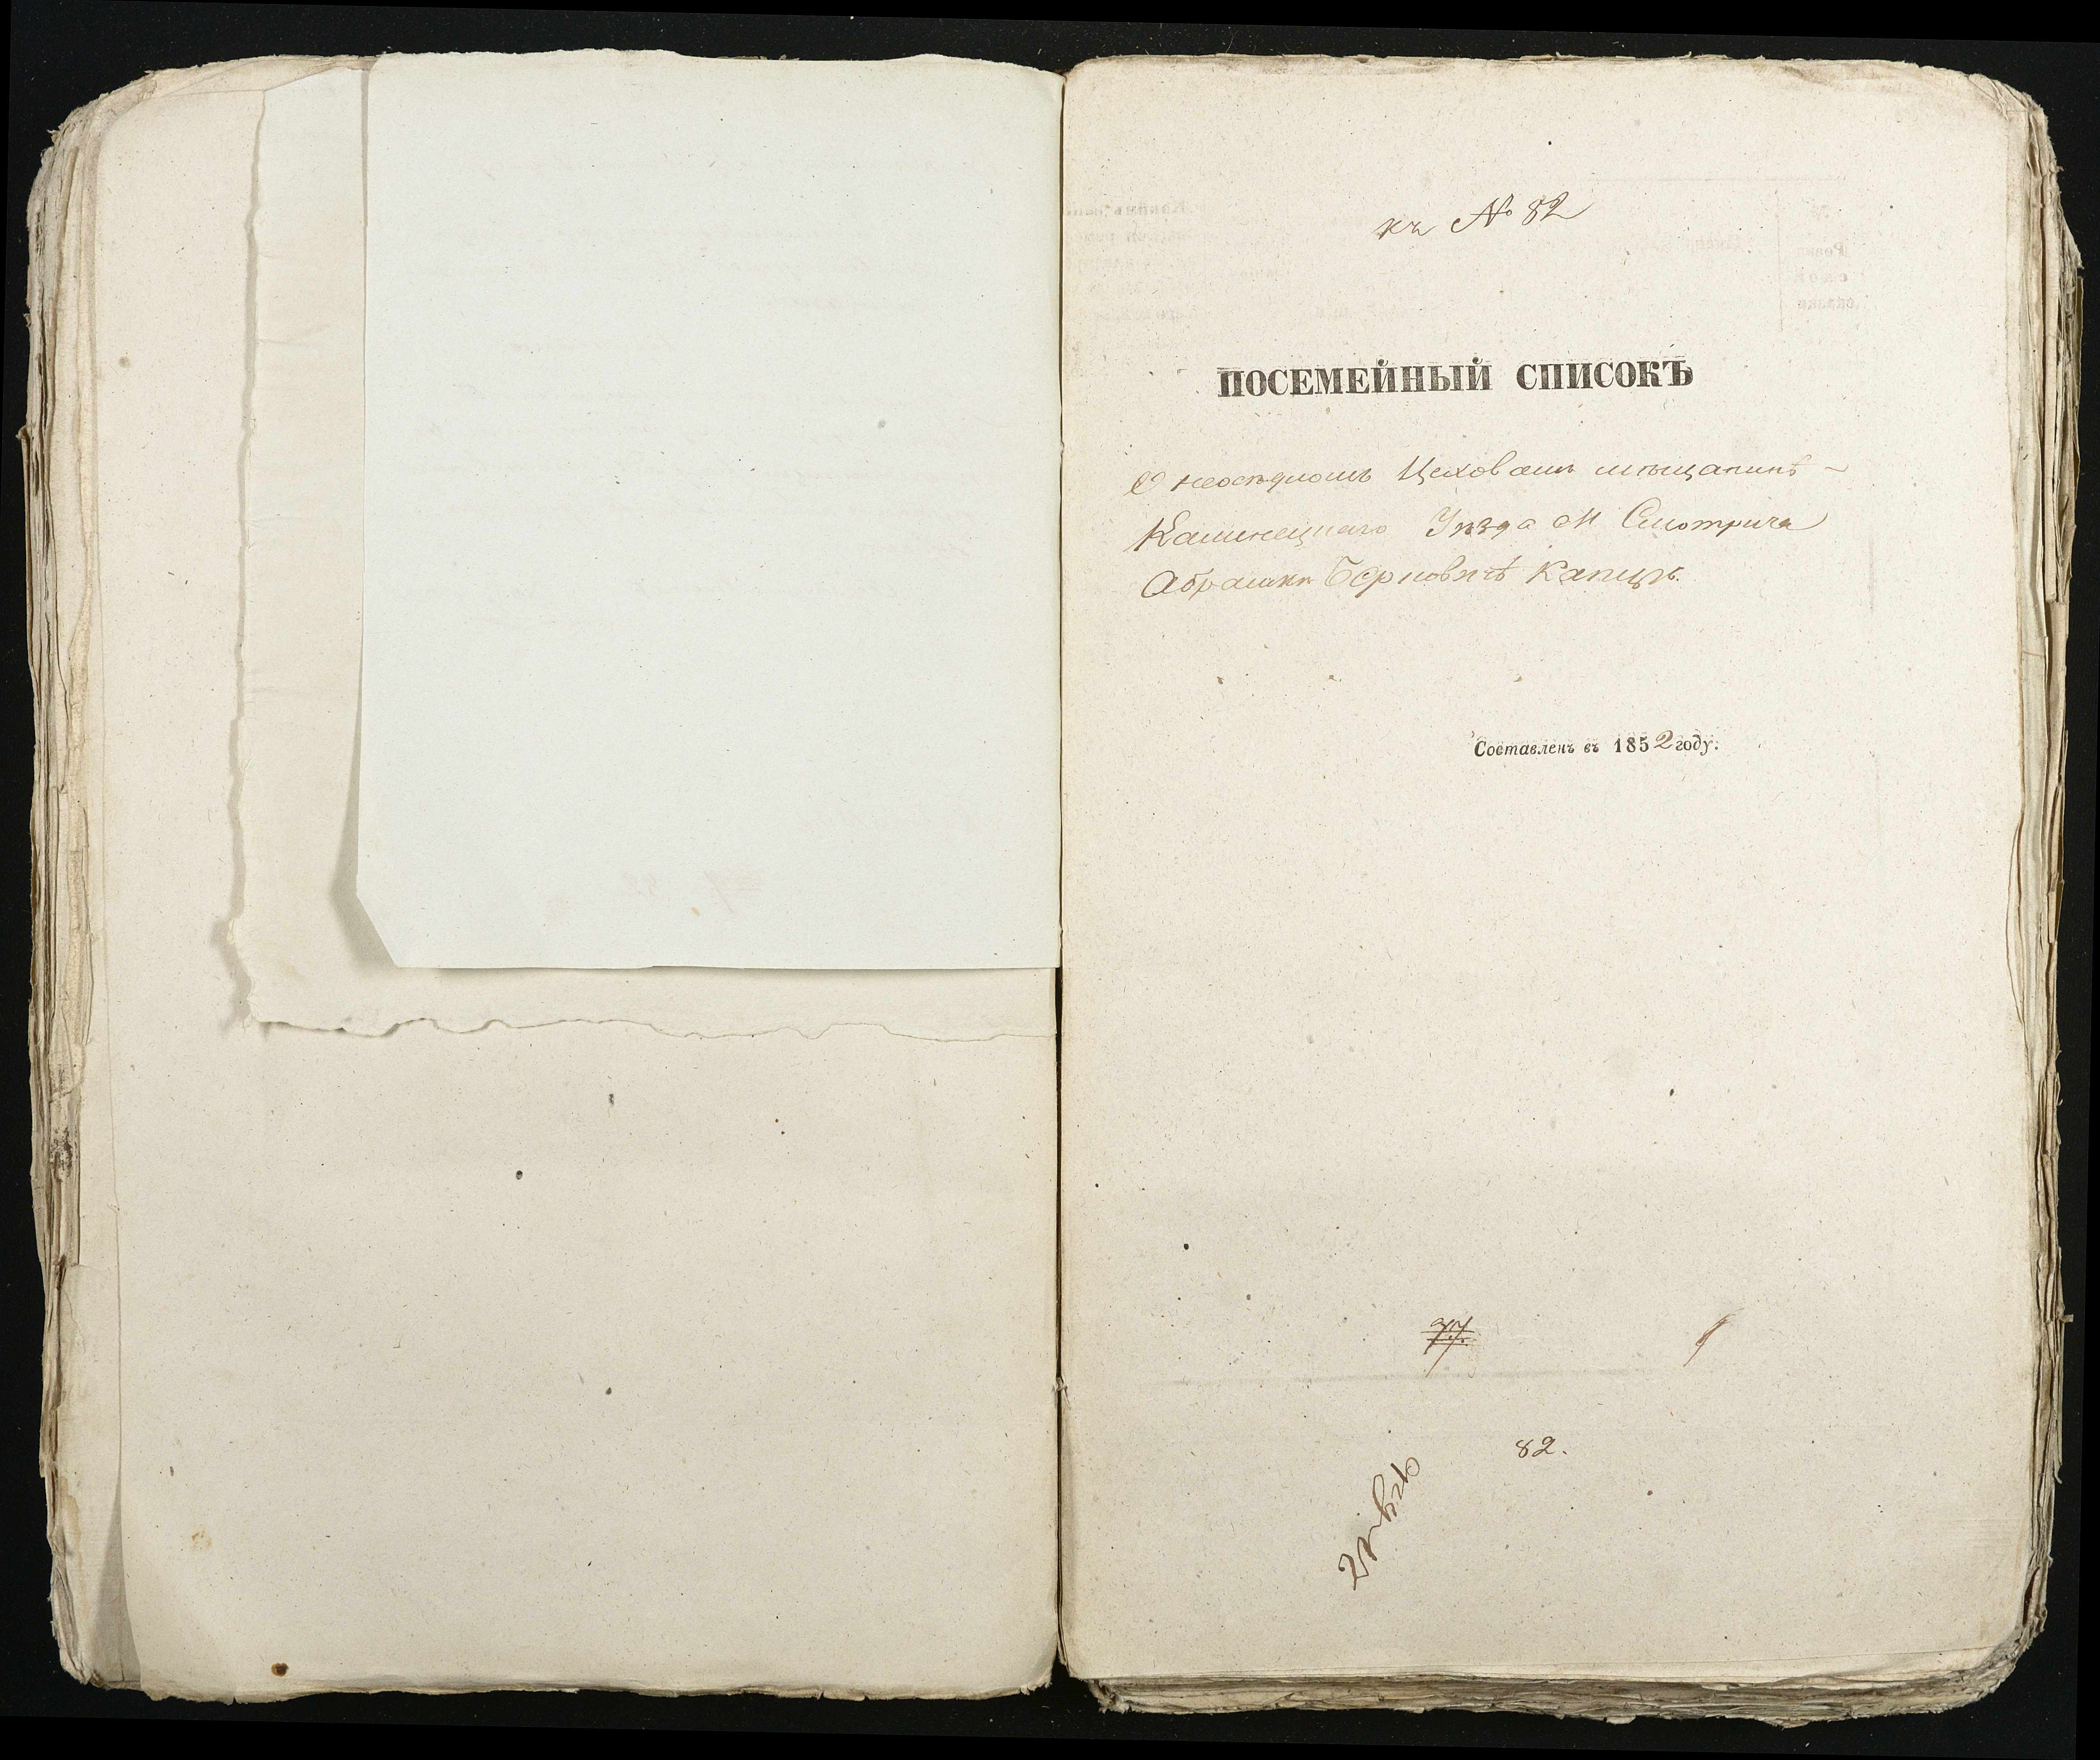 къ № 82
ПОСЕМЕЙНЫЙ СПИСОКЪ
О неоседломъ Цеховомъ мещанинѣ
Каминецкаго Уезда М Смотрича
Абрамки Берковичѣ Капцъ.
Составленъ въ 1852 году.
77
82.